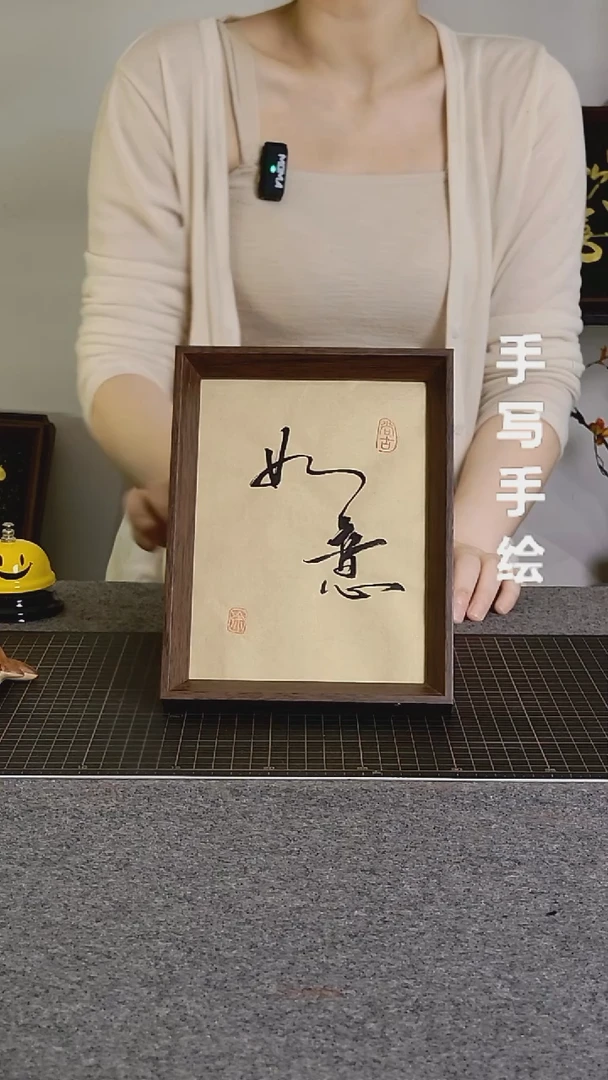 如
意
手写手绘